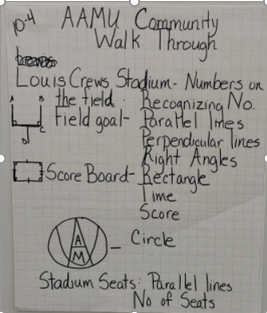 10-4
AAMU Community
Walk Through
Louis Crews Stadium- Numbers on
the field. Recognizing No.
Field goal- Parallel lines
Perpendicular lines
Right Angles
Score Board- Rectangle
Time
Score
A
M
- Circle
Stadium Seats: Parallel lines
No of Seats